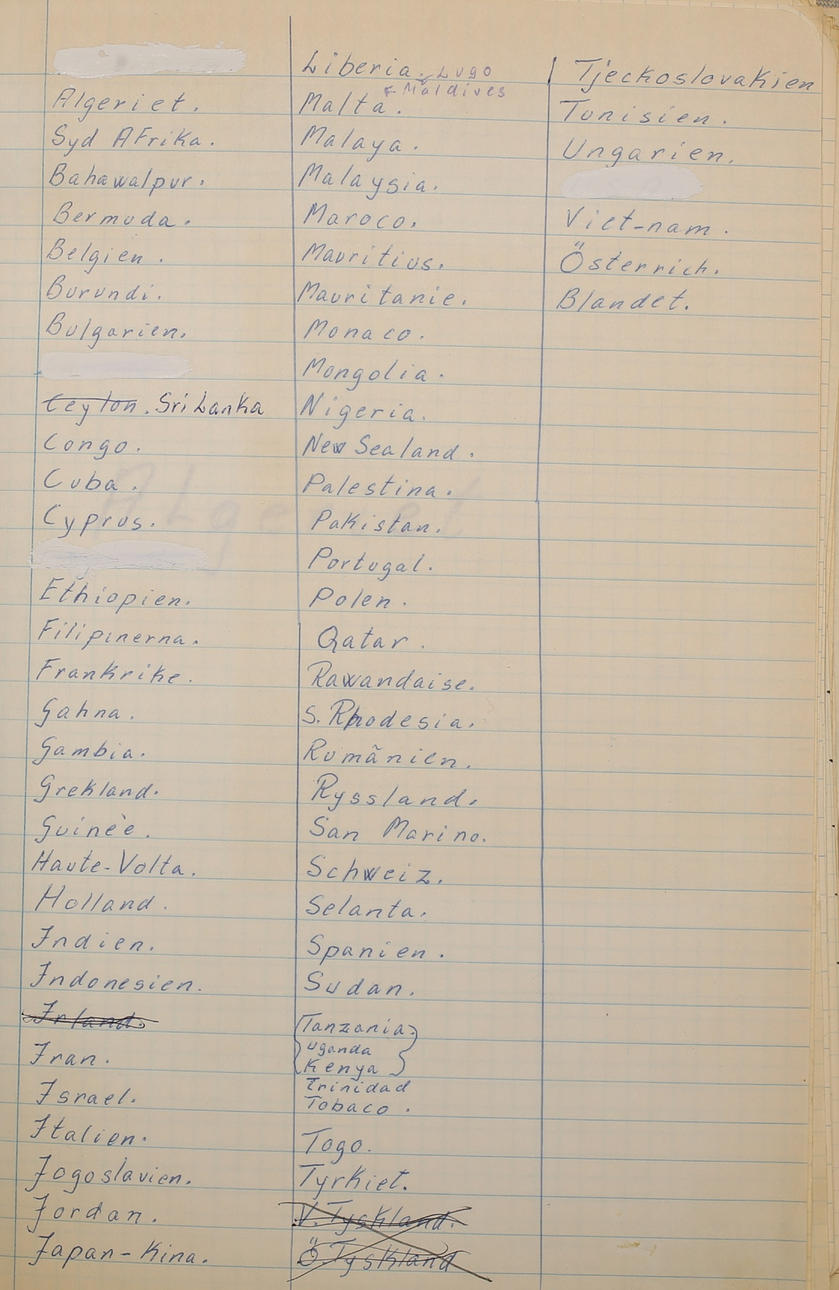 Algeriet.
Syd AFrika.
Bahawalpur.
Bermuda.
Belgien.
Burundi.
Bulgarien.
Ceylon. Sri Lanka
Congo.
Cuba.
Cyprus.
Ethiopien.
Filipinerna.
Frankrike.
Gahna.
Gambia.
Grekland.
Guinèe.
Haute-Volta.
Holland.
Indien.
Indonesien.
Irland.
Iran.
Israel.
Italien.
Jogoslavien.
Jordan.
Japan-Kina.
Liberia. Lugo
Maldives
Malta.
Malaya.
Malaysia.
Maroco.
Mauritius.
Mauritanie.
Monaco.
Mongolia.
Nigeria.
New Sealand.
Palestina.
Pakistan.
Portugal.
Polen.
Qatar.
Rawandaise.
S. Rhodesia.
Rumänien.
Ryssland.
San Marino.
Schweiz.
Selanta.
Spanien.
Sudan.
Tanzania.
Uganda
Kenya
Trinidad
Tobaco.
Togo.
Tyrkiet.
V. Tyskland.
Ö. Tyskland
Tjeckoslovakien
Tunisien.
Ungarien.
Viet-nam.
Österrich.
Blandet.